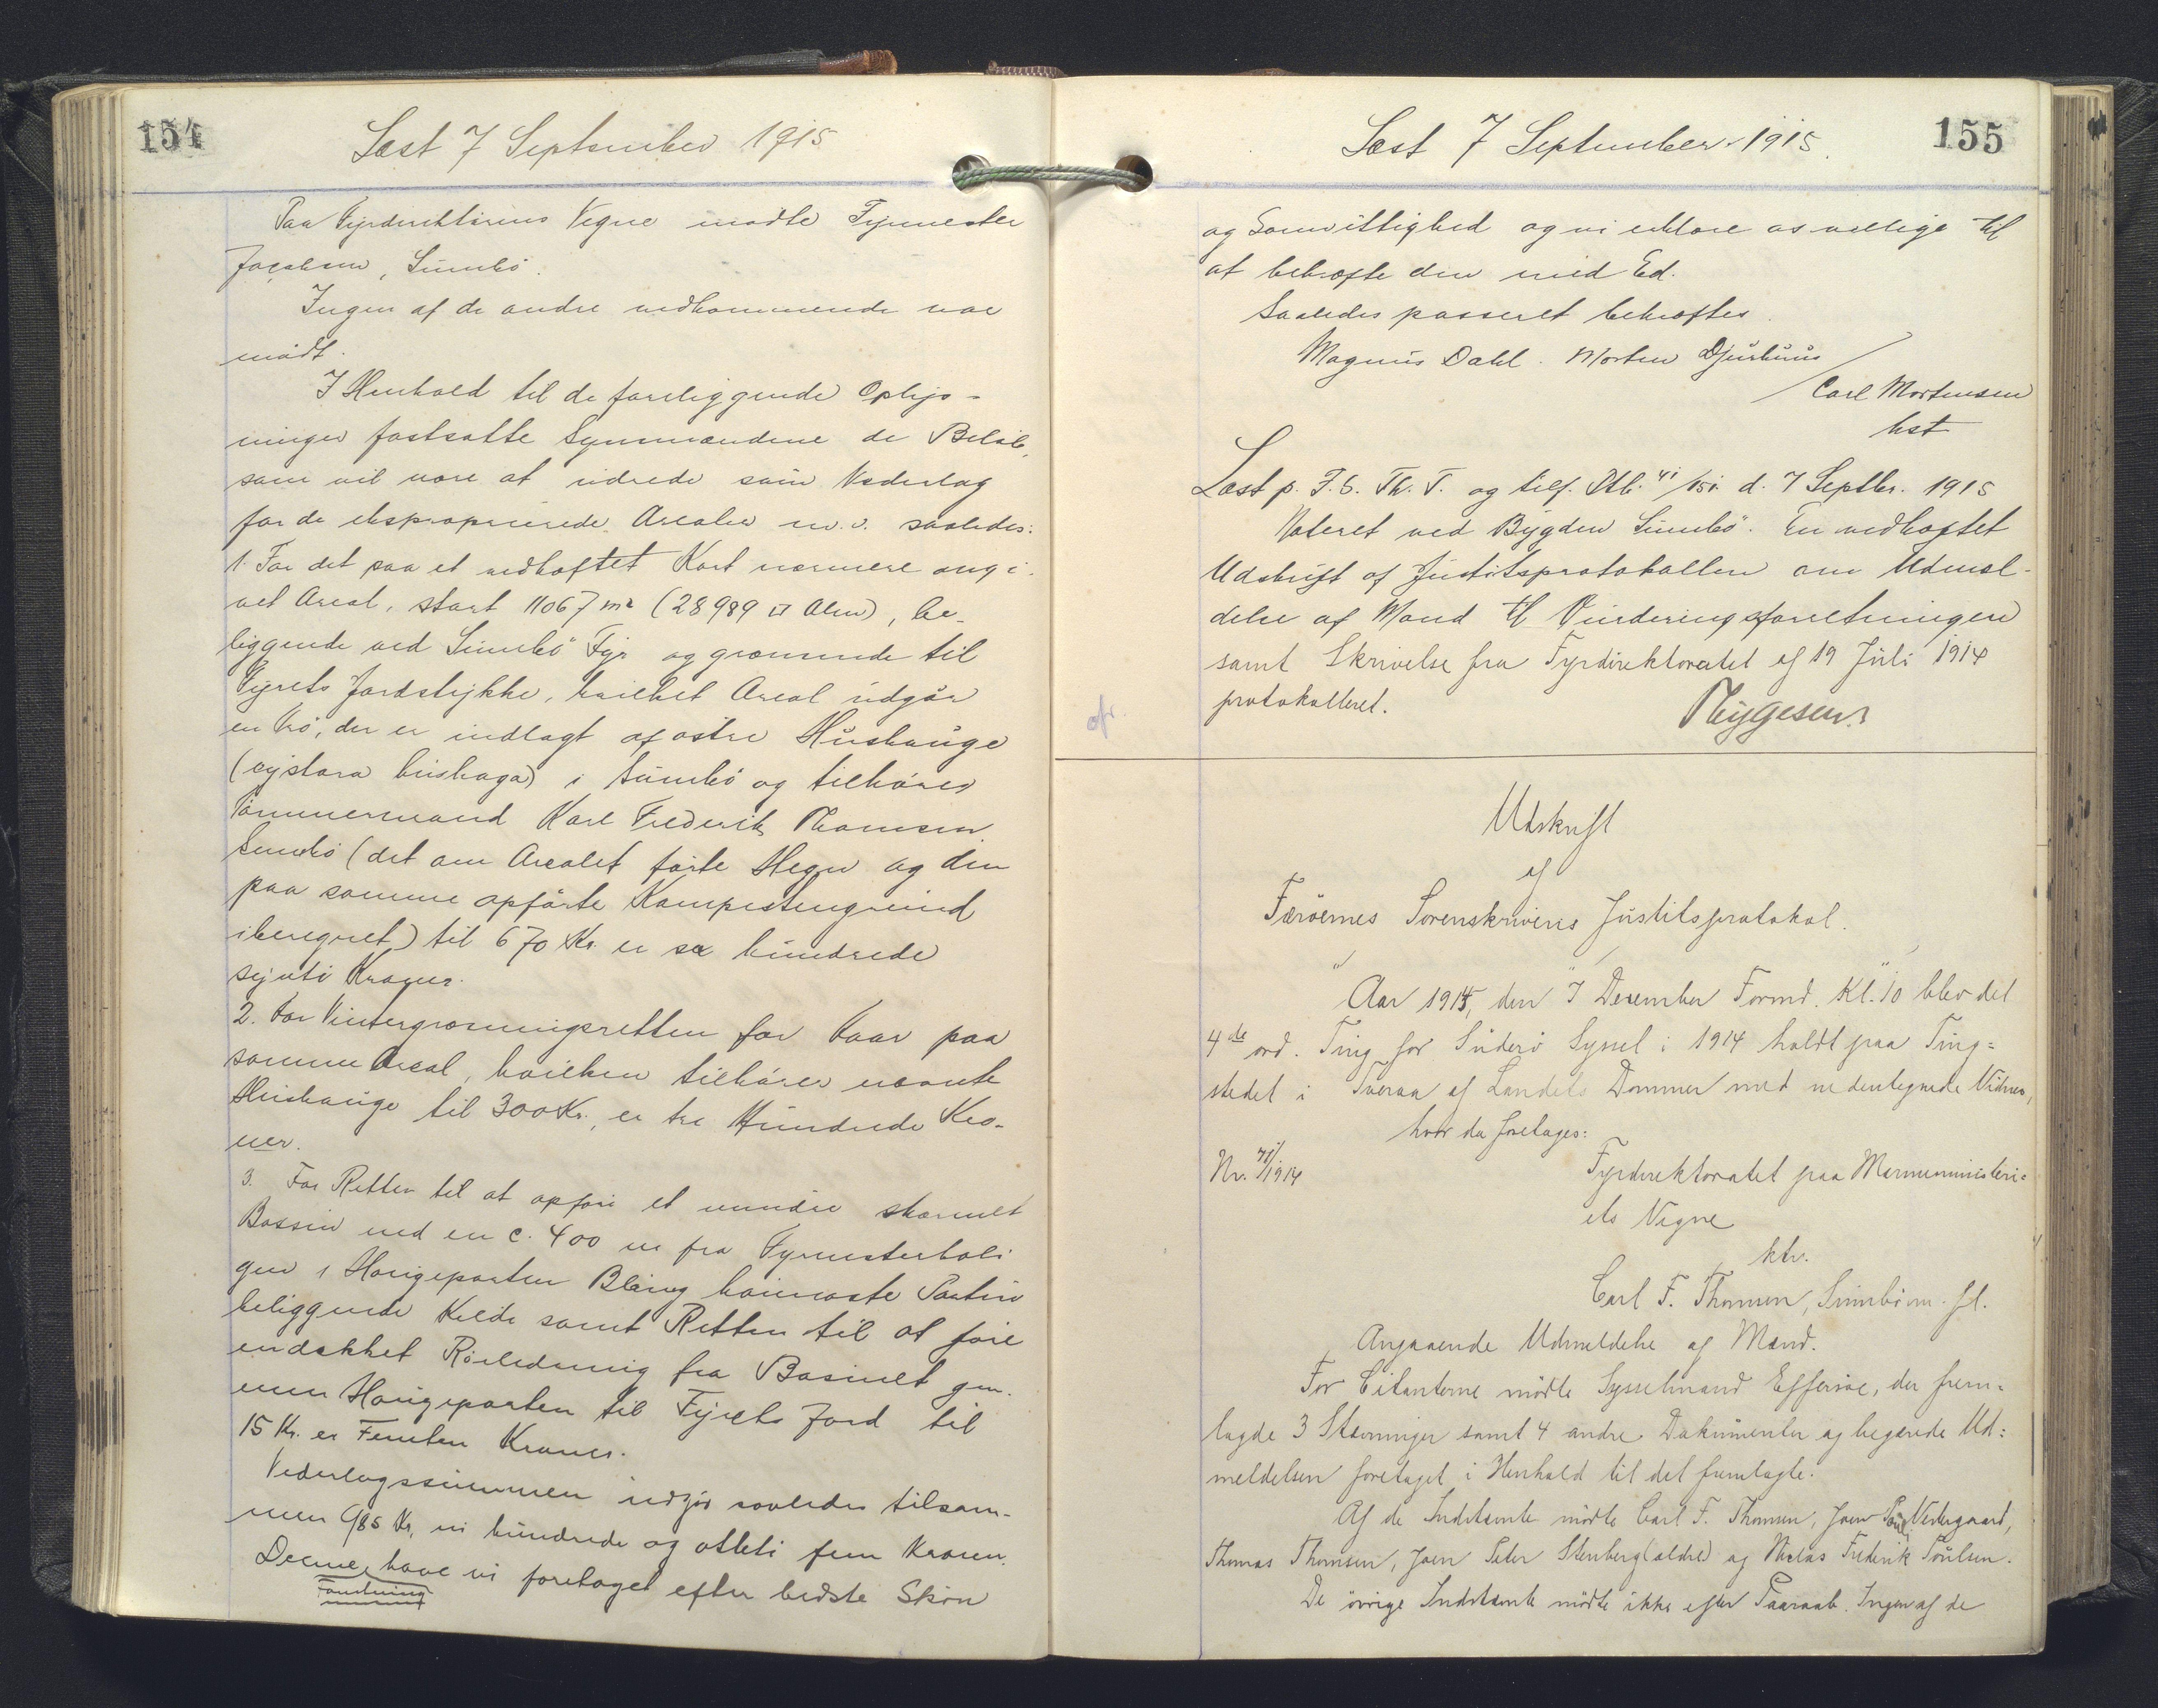 154
Læst 7 September 1915
Paa Fyrdirektørens Vegne mødte Fyrmester
Jacobsen, Sumbö.
Ingen af de andre vedkommende var
mödt.
I Henhold til de foreliggende Oplys-
ninger fastsatte Synsmændene de Belöb,
som vil være at udrede som Vederlag
for de eksproprierede Arealer m.v. saaledes:
1. For det paa et vedhæftet Kort nærmere angi-
vet Areal, stort 11067 m² (28989 □ Alen), be-
liggende ved Sumbö Fyr og grænsende til
Fyrets Jordstykke, hvilket Areal udgör
en trö, der er indlagt af östre Húshauge
(eystara húshaga) i Sumbö og tilhörer
Tömmermand Karl Frederik Thomsen
Sumbö (det om Arealet förte Hegn og den
paa samme opförte Kampestensgrund
iberegnet) til 670 Kr. er sex hundrede
syvti Kroner.
2. For Vintergræsningsretten for Faar paa
samme Areal, hvilken tilhører nævnte
Húshauge til 300 Kr., er tre Hundrede Kro-
ner.
3. For Retten til at opföre et mindre skærmet
Bassin ved en c. 400 m fra Fyrmesterboli
gen i Haugeparten heimasta Partin
beliggende Kilde samt Retten til at före
en dækket Rörledning fra Basinet gen-
nem Haugeparten til Fyrets Jord til
15 Kr. er Femten Kroner.
Vederlagssummen udgör saaledes tilsam-
men 985 Kr, ni hundrede og otteti fem Kroner.
Denne have vi foretaget efter bedste Skön
155
Læst 7 September 1915.
og Samvittighed og vi erklære os villige til
at bekræfte den med Ed.
Saaledes passeret bekræftes.
Magnus Dahl. Morten Djurhuus
/
Carl Mortensen
kst
Læst p. F. S. Th. T. og tilf. Dtb. 41/151 d. 7 Septbr. 1915
Noteret ved Bygden Sumbö. En vedhæftet
Udskrift af Justitsprotokollen om Udmel-
delse af Mænd til Vurderingsforretningen
samt Skrivelse fra Fyrdirektoratet af 19 Juli 1914
protokolleret.
Thygesen
Udskrift
af
Færöernes Sorenskriveris Justitsprotokol.
"Aar 1914, den 7 December Formd. Kl. 10 blev det
4de ord. Ting for Suderö Syssel i 1914 holdt paa Ting=
stedet i Tveraa af Landets Dommer med undertegnede Vidner,
hvor da foretages:
Nr. 41/1914
Fyrdirektoratet paa Marineministeri=
ets Vegne
ktr.
Carl F. Thomsen, Sumbö m. fl.
Angaaende Udmeldelse af Mænd.
For Citanterne mödte Sysselmand Effersöe, der frem=
lagde 3 Stævninger samt 4 andre Dokumenter og begærede Ud=
meldelsen foretaget i Henhold til det fremlagte.
Af de Indstævnte mödte Carl F. Thomsen, Joen Poul Vestergaard,
Thomas Thomsen, Joen Peter Stenberg (ældre) og Niclas Frederik Poulsen.
De övrige Indstævnte mödte ikke efter Paaraab. Ingen af de